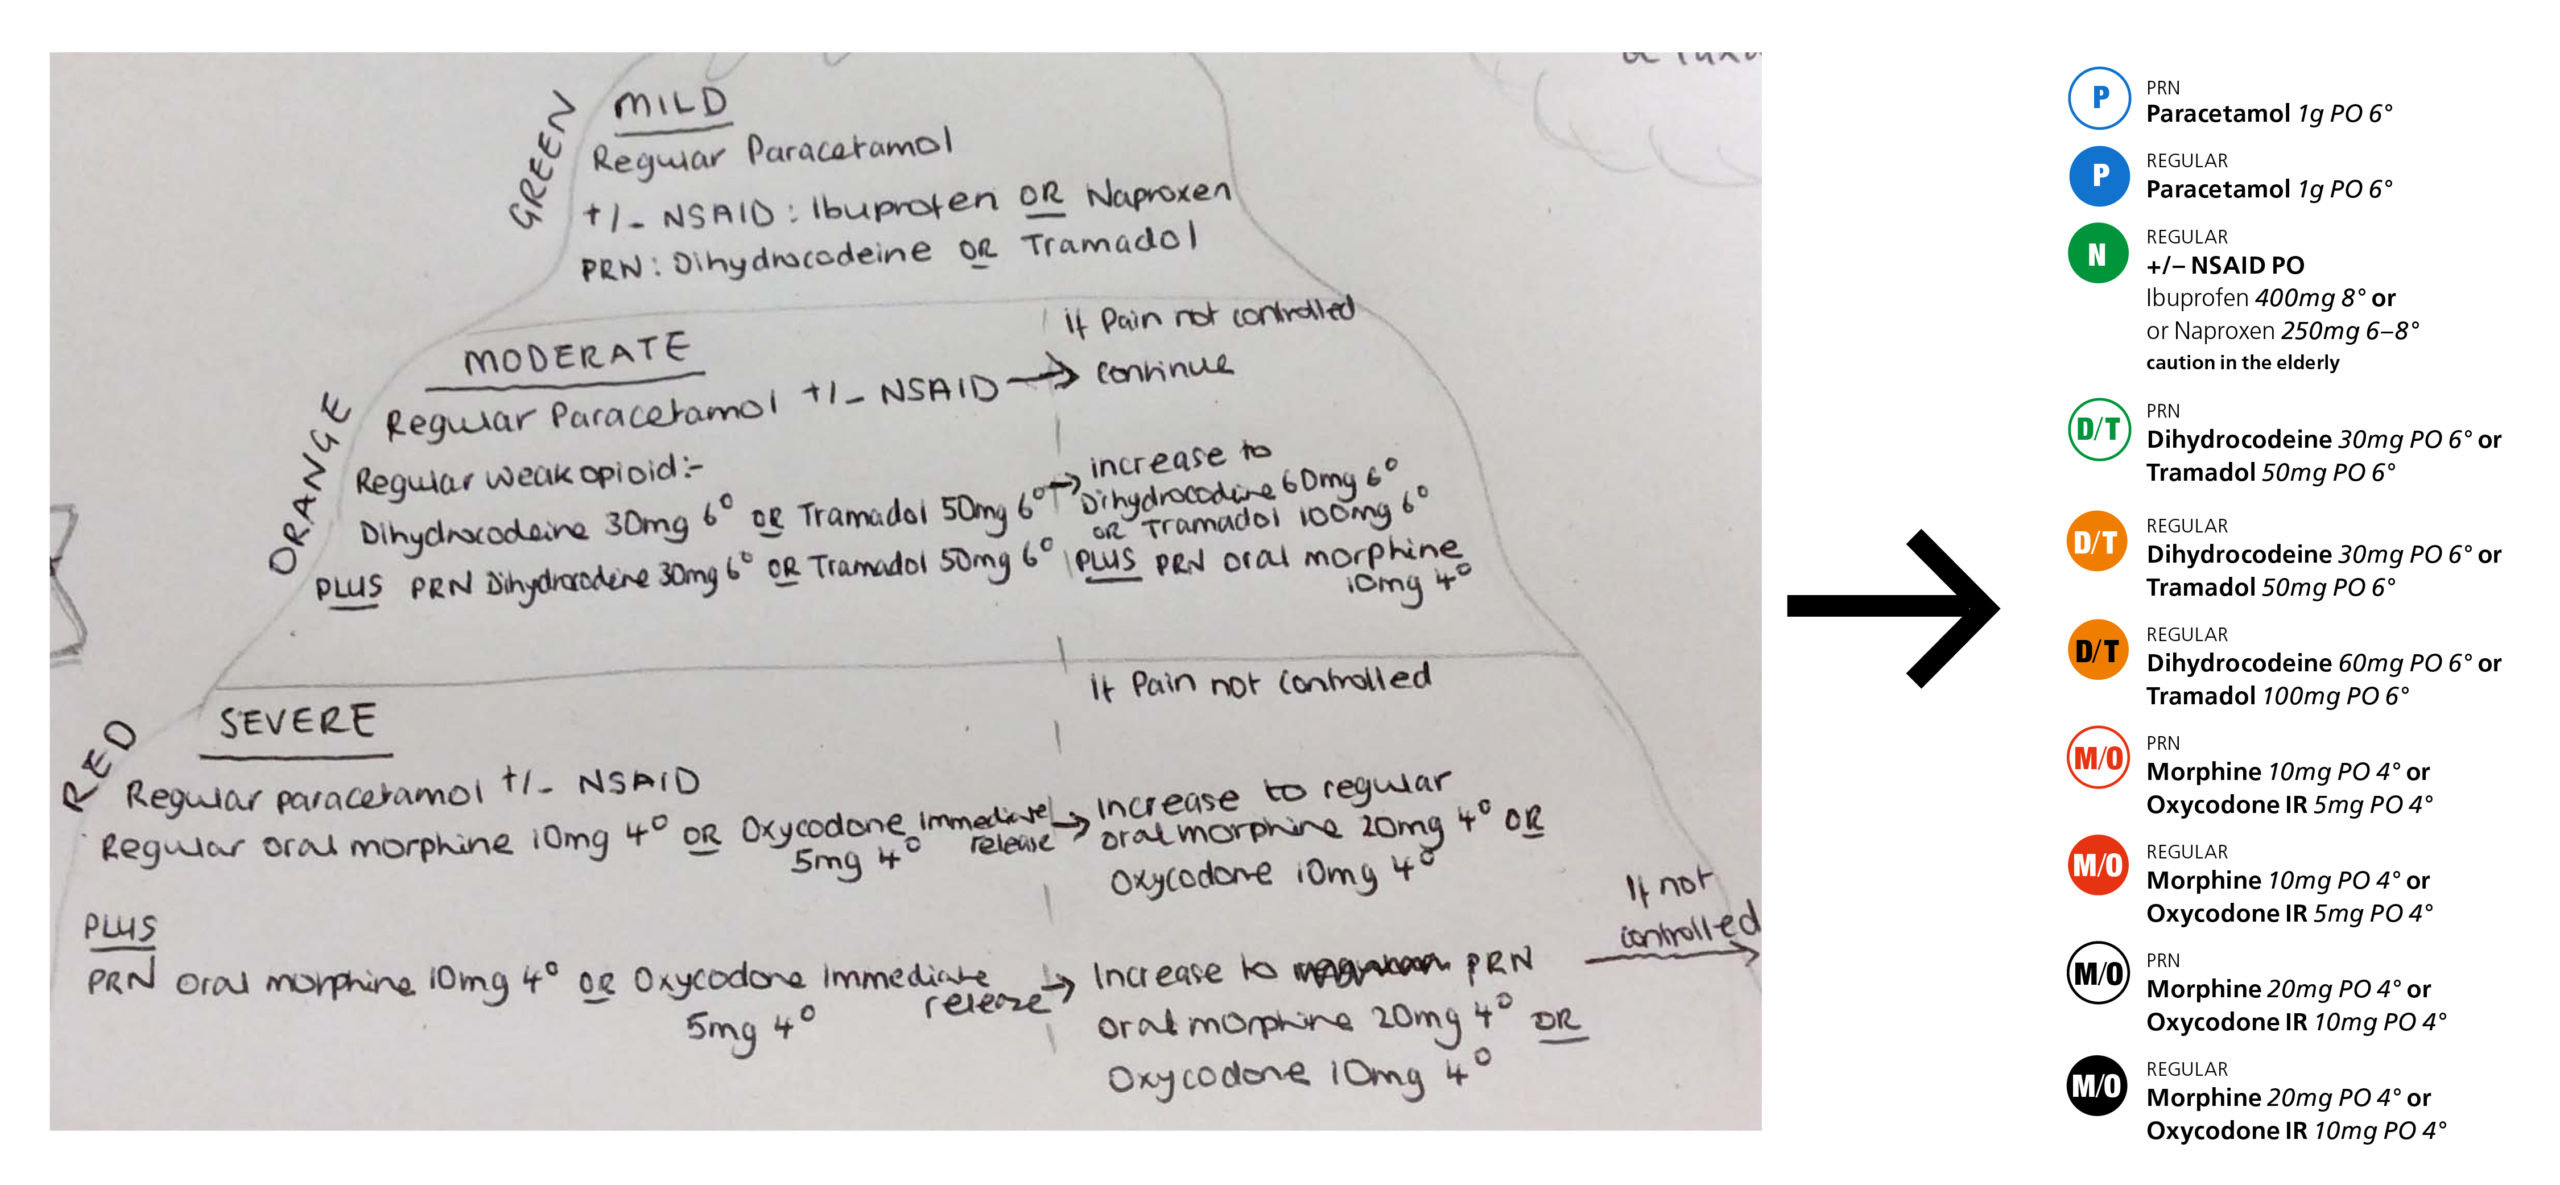 GREEN
MILD
Regular Paracetamol
+/- NSAID : Ibuprofen OR Naproxen
PRN : Dihydrocodeine OR Tramadol
ORANGE
MODERATE
Regular Paracetamol +/- NSAID →
Regular weak opioid:-
Dihydrocodeine 30mg 6° OR Tramadol 50mg 6° →
PLUS PRN Dihydrocodeine 30mg 6° OR Tramadol 50mg 6°
If Pain not controlled
continue
increase to
Dihydrocodeine 60mg 6°
OR Tramadol 100mg 6°
PLUS PRN oral morphine
10mg 4°
RED
SEVERE
Regular paracetamol +/- NSAID
Regular oral morphine 10mg 4° OR Oxycodone Immediate
release →
5mg 4°
PLUS
PRN oral morphine 10mg 4° OR Oxycodone Immediate
release →
5mg 4°
If Pain not controlled
Increase to regular
oral morphine 20mg 4° OR
Oxycodone 10mg 4°
Increase to PRN
oral morphine 20mg 4° OR
Oxycodone 10mg 4°
If not
controlled
P
PRN
Paracetamol 1g PO 6°
P
REGULAR
Paracetamol 1g PO 6°
N
REGULAR
+/– NSAID PO
Ibuprofen 400mg 8° or
or Naproxen 250mg 6–8°
caution in the elderly
D/T
PRN
Dihydrocodeine 30mg PO 6° or
Tramadol 50mg PO 6°
D/T
REGULAR
Dihydrocodeine 30mg PO 6° or
Tramadol 50mg PO 6°
D/T
REGULAR
Dihydrocodeine 60mg PO 6° or
Tramadol 100mg PO 6°
M/O
PRN
Morphine 10mg PO 4° or
Oxycodone IR 5mg PO 4°
M/O
REGULAR
Morphine 10mg PO 4° or
Oxycodone IR 5mg PO 4°
M/O
PRN
Morphine 20mg PO 4° or
Oxycodone IR 10mg PO 4°
M/O
REGULAR
Morphine 20mg PO 4° or
Oxycodone IR 10mg PO 4°